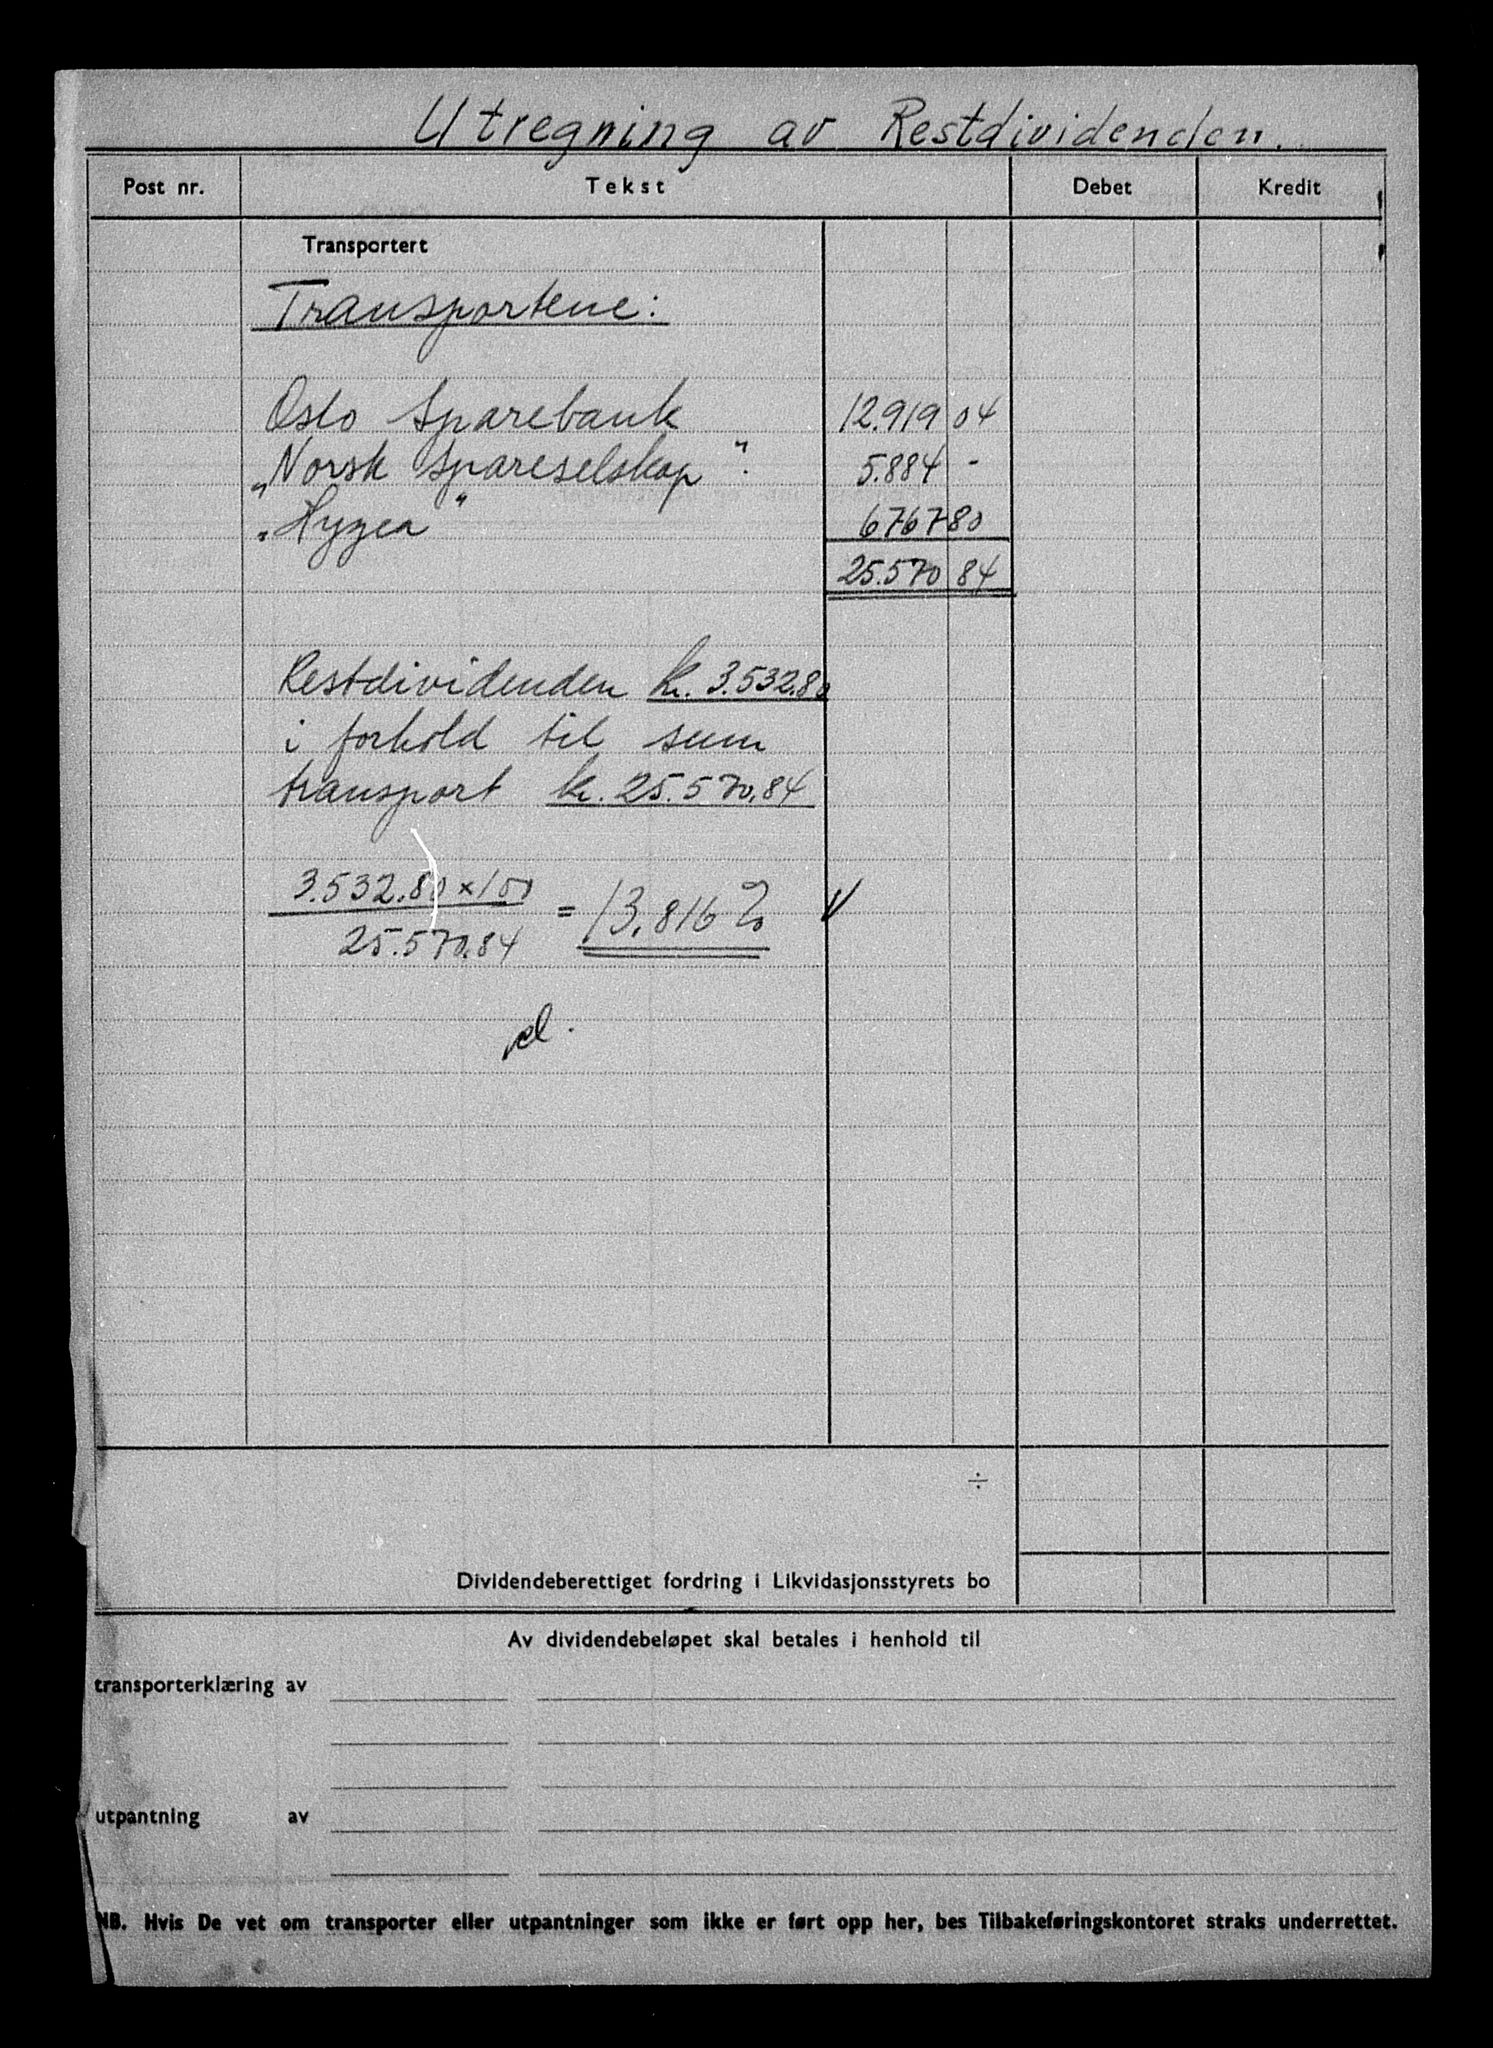 Utregning av Restdividenden.
Post nr. Tekst Debet Kredit
Transportert
Transportene:
Oslo Sparebank 12.919 04
"Norsk Spareselskap". 5.884 -
"Hygea" 6767 80
25.570 84
Restdividenden kr. 3.532.80
i forhold til sum
transport kr. 25.570,84
3.532.80 x 100
25.570.84
= 13,816 %
÷
Dividendeberettiget fordring i Likvidasjonsstyrets bo
Av dividendebeløpet skal betales i henhold til
transporterklæring av
utpantning av
NB. Hvis De vet om transporter eller utpantninger som ikke er ført opp her, bes Tilbakeføringskontoret straks underrettet.